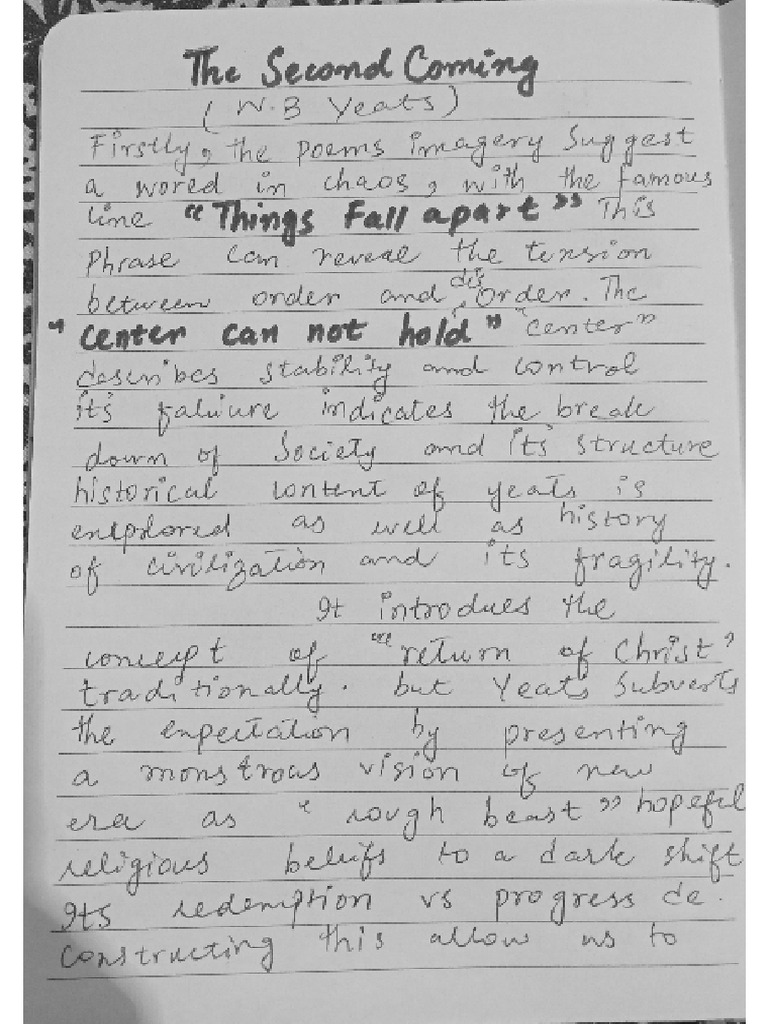 The Second Coming
(W.B Yeats)
Firstly, the poems imagery suggest
a wored in chaos, with the famous
line "Things Fall apart" This
phrase can reveal the tension
between order and disorder. The
"center can not hold" "center"
describes stability and control
its faliure indicates the break
down of society and its structure
historical content of yeats is
enlplored as well as history
of civilization and its fragility.
It introdues the
concept of "return of Christ"
traditionally. but Yeats subverts
the expectation by presenting
a monstroas vision of new
era as "rough beast" hopeful
religious beliefs to a dark shift
Its redemption vs progress de.
constructing this allow us to